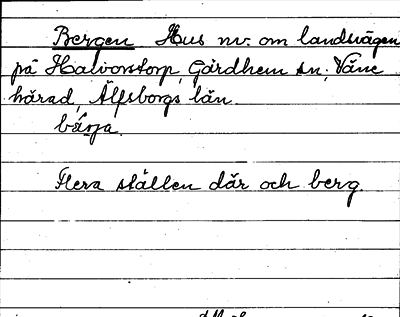 Bergen Hus nv. om landsvägen
på Halvorstorp, Gärdhem sn; Väne
härad, Älfsborgs län.
bárja.
Flera ställen där och berg.